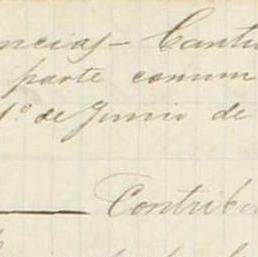 ncias - Cantid
parte comun
1º de Junio de
Contribu